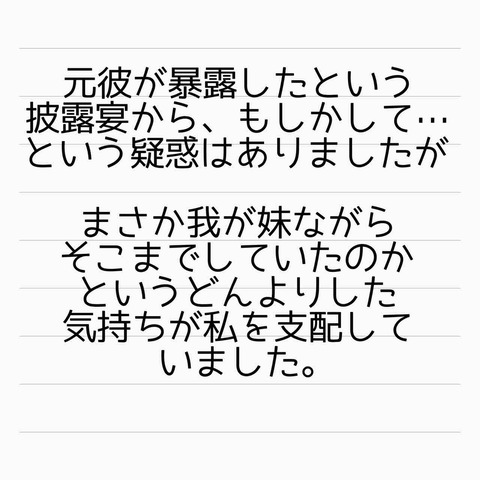 元彼が暴露したという
披露宴から、もしかして…
という疑惑はありましたが
まさか我が妹ながら
そこまでしていたのか
というどんよりした
気持ちが私を支配して
いました。